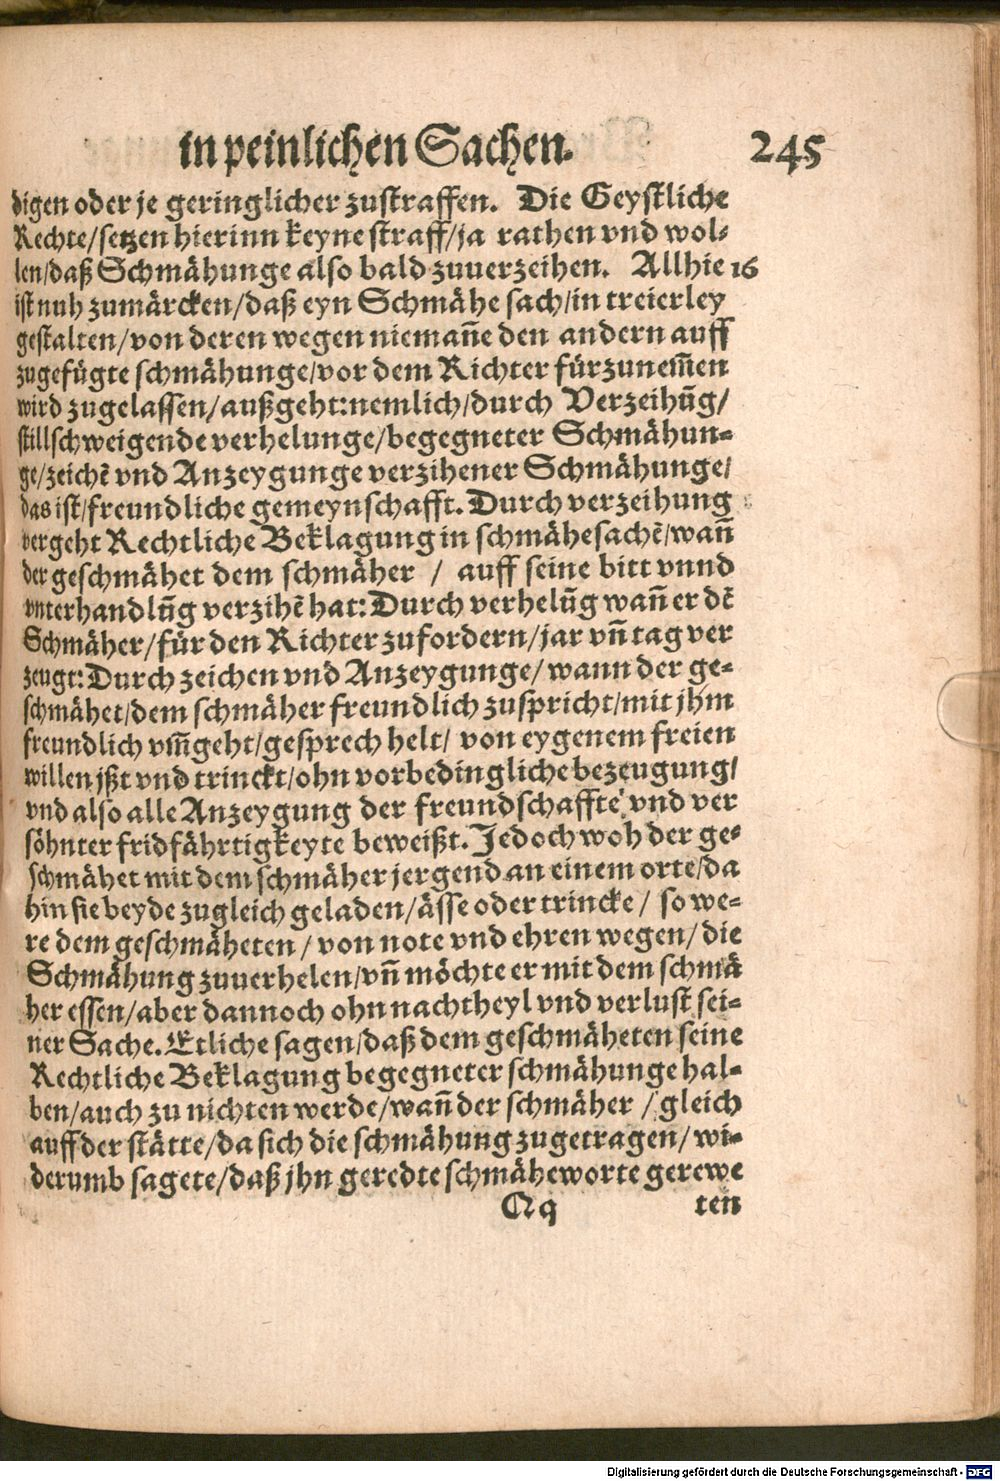 in peinlichen Sachen. 245
digen oder je geringlicher zustraffen. Die Geystliche
Rechte/setzen hierinn keyne straff/ja rathen vnd wol-
len/daß Schmähunge also bald zuuerzeihen. Allhie 16
ist nuh zumärcken/daß eyn Schmähe sach/in treierley
gestalten/von deren wegen niemañe den andern auff
zugefügte schmähunge/vor dem Richter fürzunem̃en
wird zugelassen/außgeht:nemlich/durch Verzeihũg/
stillschweigende verhelunge/begegneter Schmähun-
ge/zeichẽ vnd Anzeygunge verzihener Schmähunge/
das ist/freundliche gemeynschafft. Durch verzeihung
vergeht Rechtliche Beklagung in schmähesachẽ/wañ
der geschmähet dem schmäher / auff seine bitt vnnd
vnterhandlũg verzihẽ hat: Durch verhelũg wañ er dẽ
Schmäher/für den Richter zufordern/jar vñ tag ver
zeugt: Durch zeichen vnd Anzeygunge/wann der ge-
schmähet/dem schmäher freundlich zuspricht/mit jhm
freundlich vm̃geht/gesprech helt/ von eygenem freien
willen jßt vnd trinckt/ohn vorbedingliche bezeugung/
vnd also alle Anzeygung der freundschaffte vnd ver
söhnter fridfährtigkeyte beweißt. Jedoch woh der ge-
schmähet mit dem schmäher jergend an einem orte/da
hin sie beyde zugleich geladen/ässe oder trincke/ so we-
re dem geschmäheten/ von note vnd ehren wegen/ die
Schmähung zuuerhelen/vñ möchte er mit dem schmä
her essen/aber dannoch ohn nachtheyl vnd verlust sei-
ner Sache. Etliche sagen/daß dem geschmäheten seine
Rechtliche Beklagung begegneter schmähunge hal-
ben/auch zu nichten werde/wañ der schmäher / gleich
auff der stätte/da sich die schmähung zugetragen/ wi-
derumb sagete/daß jhn geredte schmäheworte gerewe
Qq ten
Digitalisierung gefördert durch die Deutsche Forschungsgemeinschaft - DFG